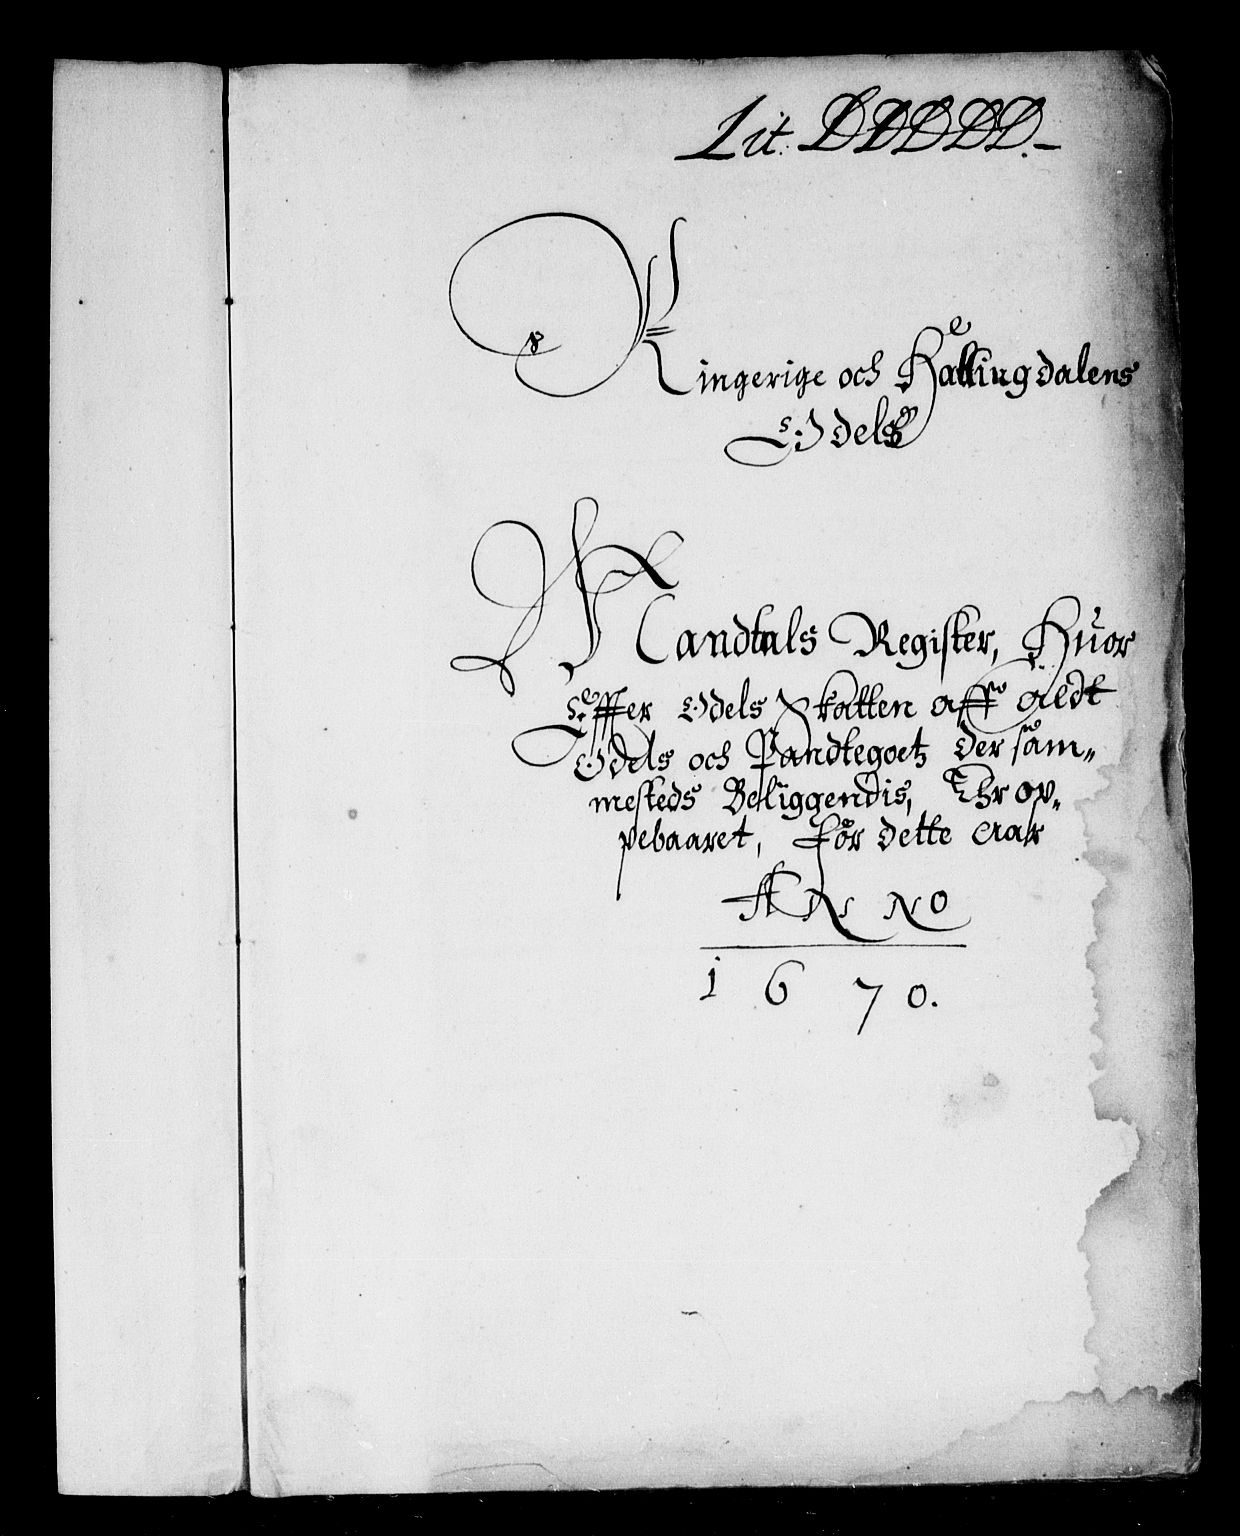 Lit. DDDDD.
Ringerige och Hallingdalens
Odels
Mandtals Register, Huor
Effter Odels Skatten aff aldt
Odels och Pandtegoetz der sam„
mesteds Beliggendis, Ehr op„
pebaaret, för dette Aar
ANNO
1670.